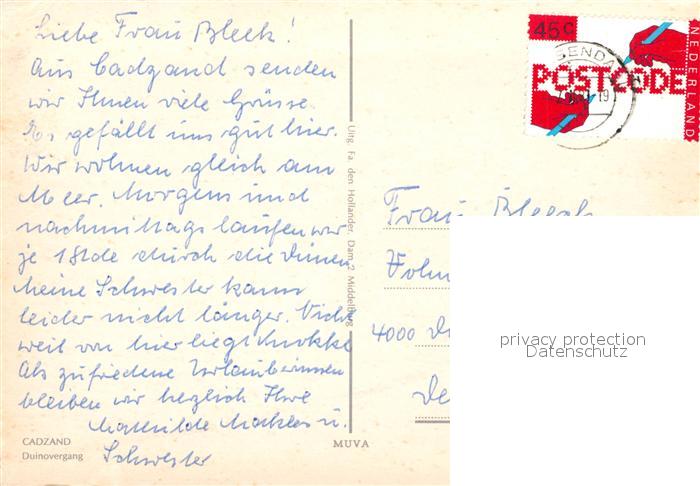 Liebe Frau Bleek!
Aus Cadzand senden
wir Ihnen viele Grüsse.
Es gefällt uns gut hier.
Wir wohnen gleich am
Meer. Morgens und
nachmittags laufen wir
je 1 Std durch die Dünen
meine Schwester kann
leider nicht länger. Nicht
weit von hier liegt Knokke
Als zufriedene Urlauberinnen
bleiben wir herzlich Ihre
Mathilde u.
Schwester
CADZAND
Duinovergang
MUVA
Uitg. Fa. den Hollander, Dam 2 Middelburg
45c
POSTCODE
NEDERLAND
Frau Bleek
4000
privacy protection
Datenschutz